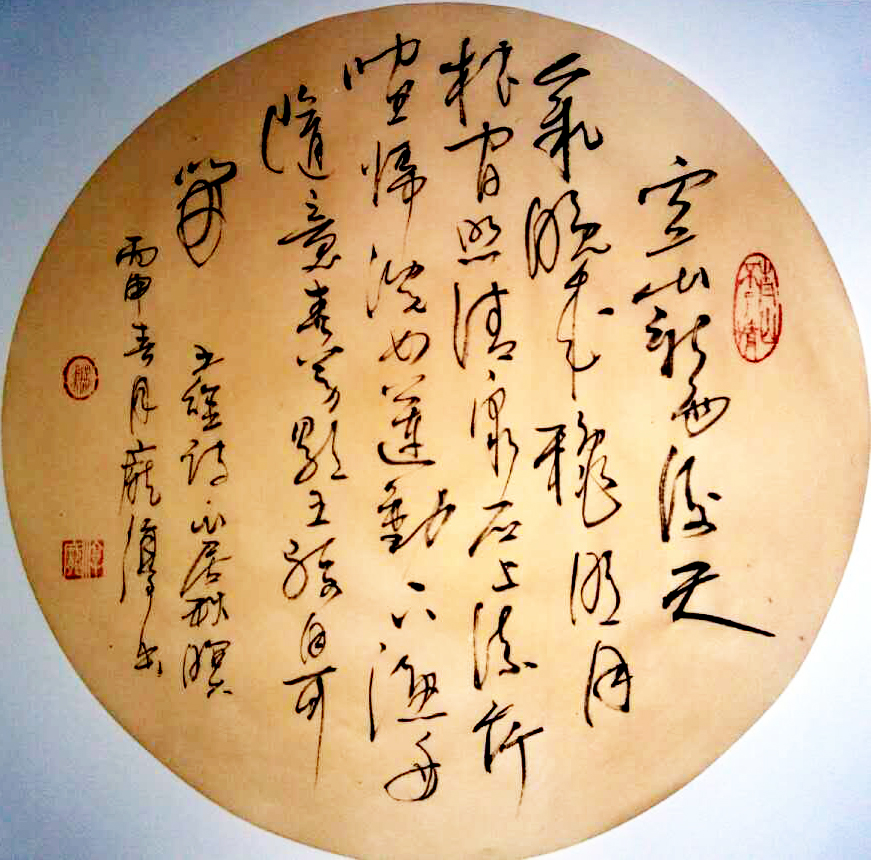 空山新雨後天
氣晚來秋明月
松間照清泉石上流竹
喧歸浣女蓮動下漁舟
隨意春芳歇王孫自可
留
王維詩山居秋暝
丙申春月龐书